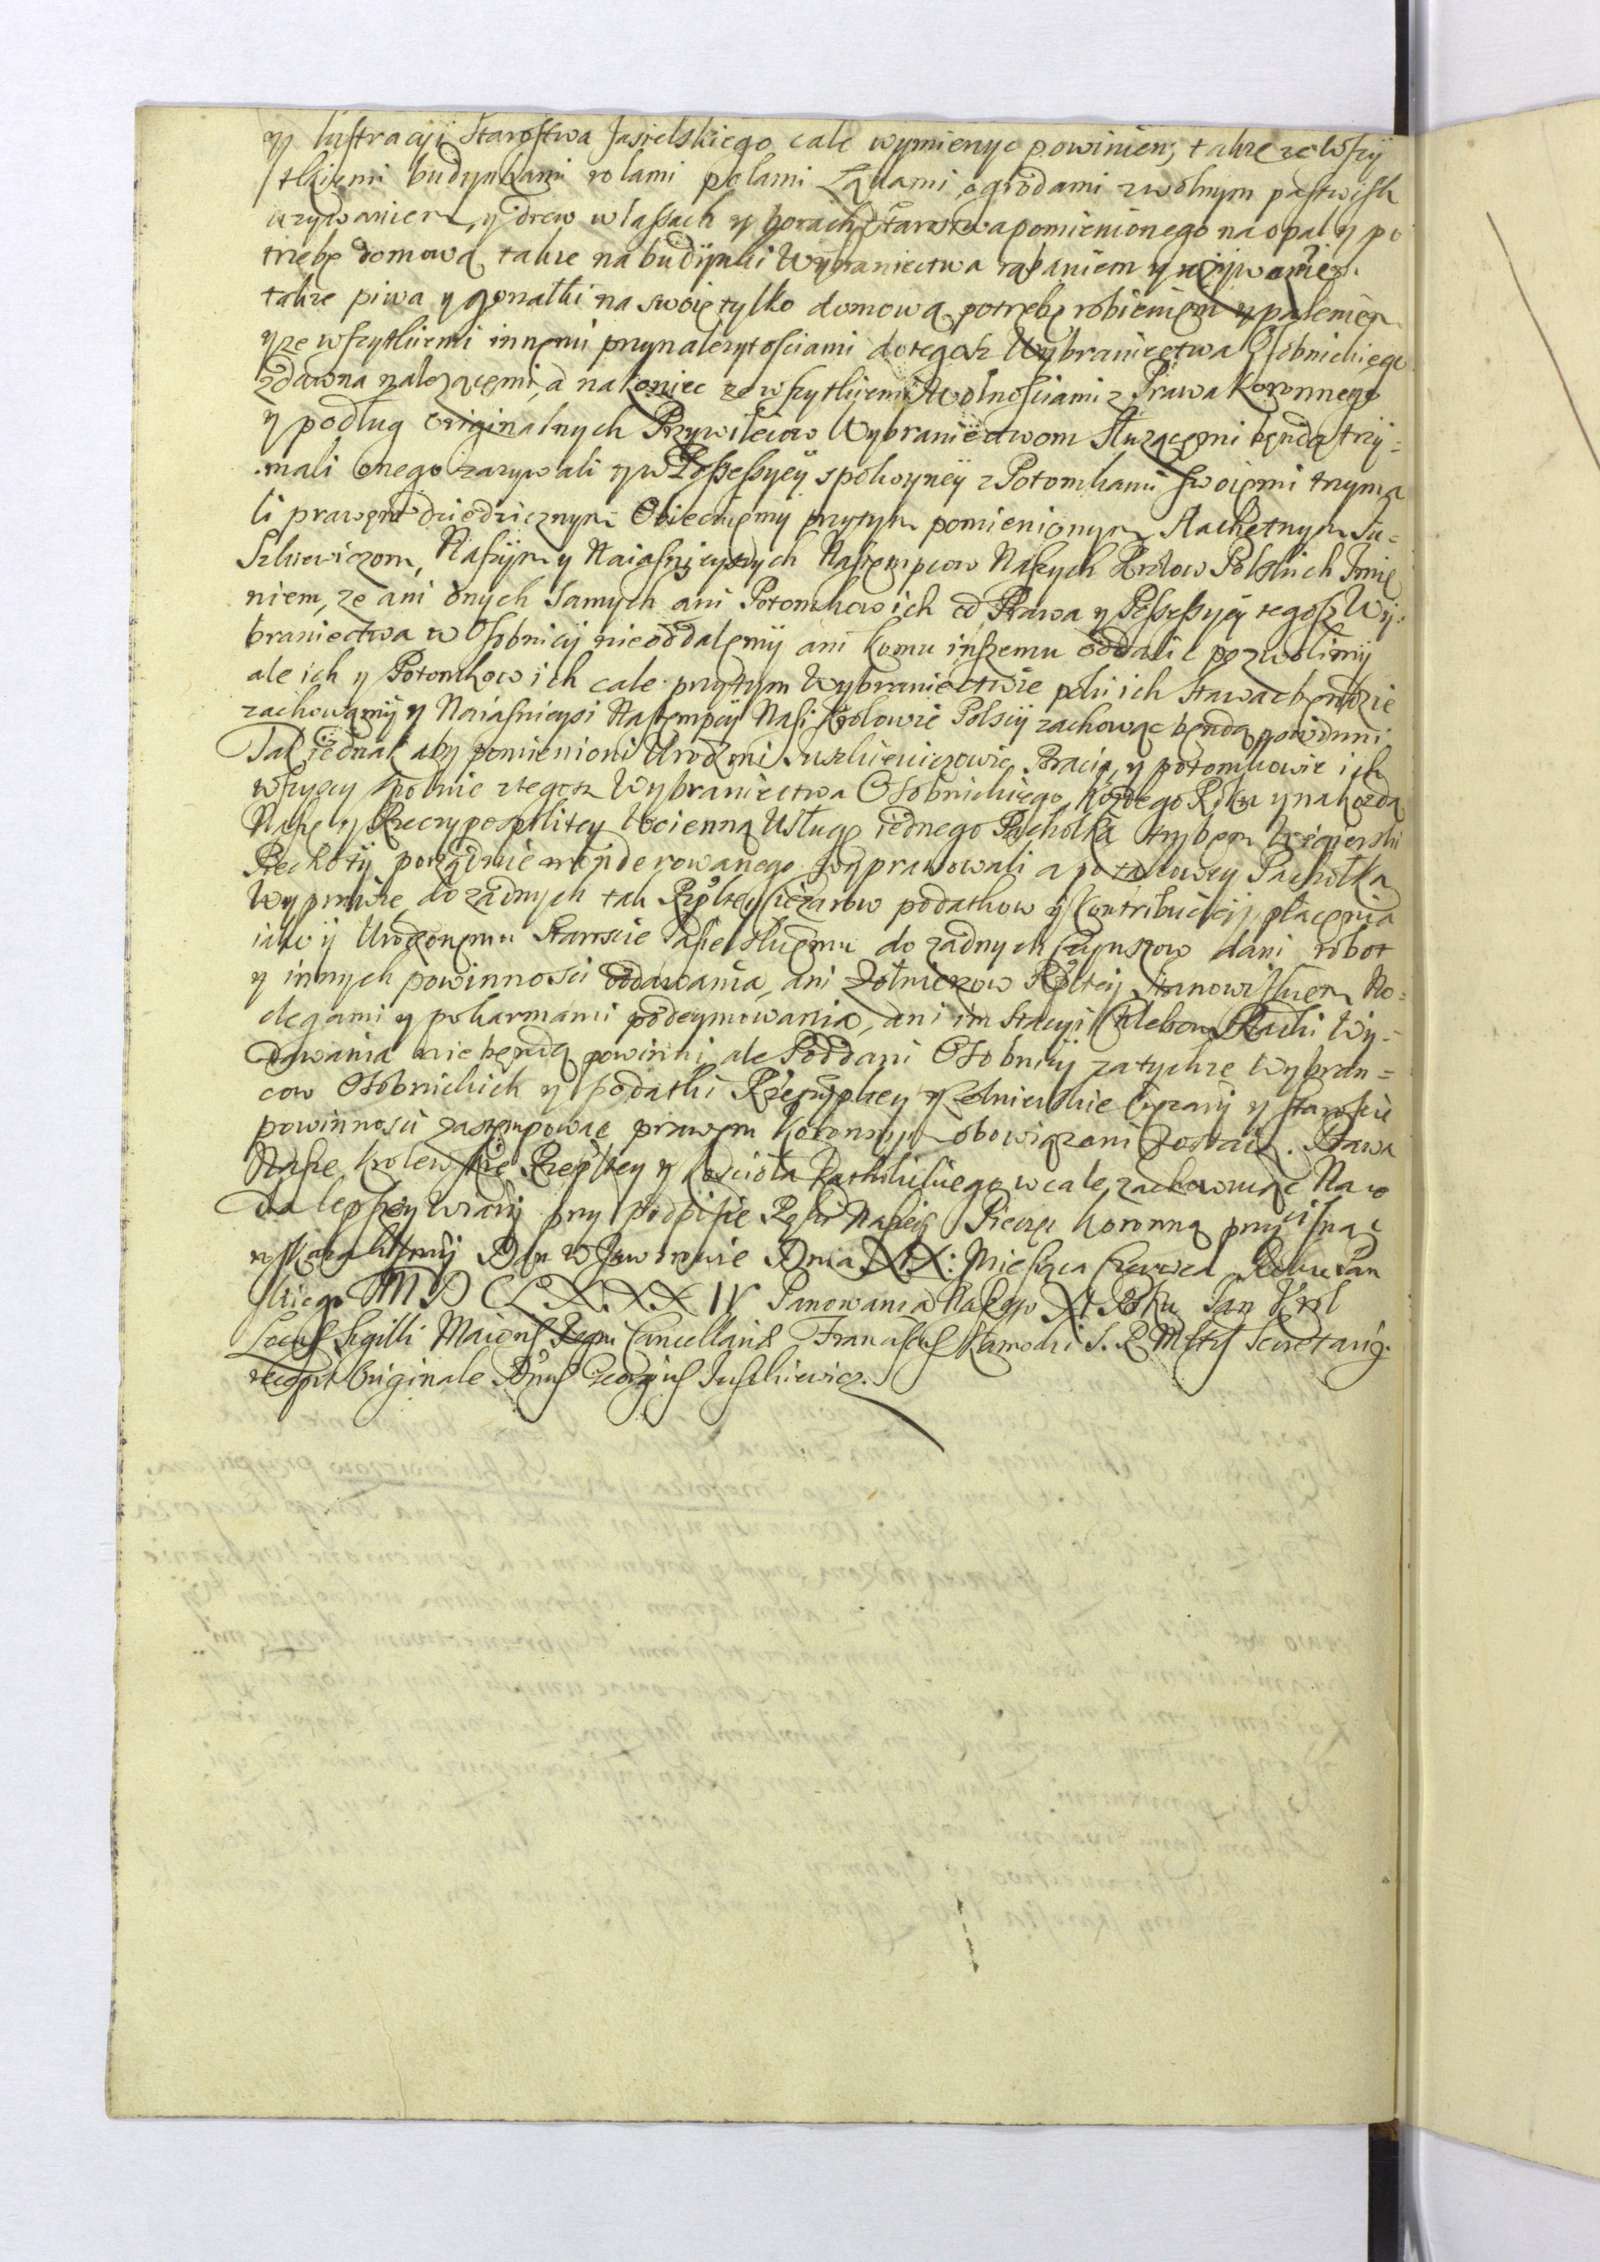 y lustracyi Starostwa Jasielskiego cale wymienyc powinien, takze ze wszy
stkiemi budynkami rolami polami Łąkami ogrodami z wolnym pastwisk
uzywaniem, y drew w lassach y borach Starostwa pomienionego na opał y po
trzebę domową, takze na budynki Wybraniectwa rąbaniem y uzywaniem
takze piwa y gorzałki na swoię tylko domową potrzebę robieniem y paleniem
y ze wszytkiemi innemi przynalezytosciami do tegosz Wybraniectwa Osobnickiego
zdawna nalezącemi, a nakoniec ze wszytkiemi Wolnosciami z Prawa Koronnego
y podług originalnych Przywileiow Wybraniectwom Słuzącemi będą trzy=
mali onego zazywali y w Possessyey spokoyney z Potomkami swoiemi trzyma
li prawem dziedzicznym Obiecuiemy przytym pomienionym Slachetnym Ju=
szkiewiczom, Naszym y Naiasnieyszych Nastempcow Naszych Krolow Polskich Imie
niem, ze ani onych Samych ani Potomkow ich od Prawa y Possessyey tegosz Wy=
braniectwa w Osobnicy nie oddalemy ani komu inszemu oddalic pozwolimy
ale ich y Potomkow ich cale przytym Wybraniectwie poki ich stawac bendzie
zachowamy y Naiasnieysi Nastempcy Nasi Krolowie Polscy zachowac będą powinni
Tak iednak aby pomienioni Urodzeni Juszkiewiczowie Bracia, y potomkowie ich
wszyscy spolnie z tegosz Wybraniectwa Osobnickiego kozdego Roku y na kozdą
Naszę y Rzeczypospolitey Woienną Usługę iednego Pachołka trybem Węgierski
Piechoty porządnie mąnderowanego wyprawowali a po takowey Pachołka
Wyprawie do zadnych tak Rzpltey Cięzarow podatkow y Kontribucyey płacenia
iako y Urodzonemu Staroscie Jasielskiemu do zadnych Czynszow dani robot
y innych powinnosci oddawania, ani Zołnierzow Rzpltey Stanowiskiem No=
clegami y pokarmami podeymowania, ani im Stacyi Chlebow Rachi Wy=
dawania nie będą powinni, ale Poddani Osobnicy za tychze Wybran=
cow Osobnickich y podatki Rzeczypltey y Zołnierskie Cięzary y Staroscie
powinnosci zastempowac prawem koronnym obowiązani zostaią. Prawa
Nasze Krolewskie Rzepltey y Koscioła Katholickiego wcale zachowuiąc Na co
dla lepszey wiary przy podpisie Ręki Naszey Pieczęc Koronną przycisnąc
rozkazalismy Dan w Jaworowie Dnia XIX: Miesiąca Czerwca Roku Pan
skiego M D C L X X X IV Panowania Naszego XI Roku Jan Krol
Locus Sigilli Maioris Regni Cancellariae Franciscus S. R. Mttis Secretarius.
recepit Originale Dnus Georgius Juszkiewicz.